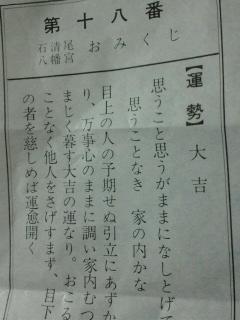 第十八番
おみくじ
尾宮
清幡
石八
【運勢】 大吉
思うこと思うがままになしとげて
思うことなき 家の内かな
目上の人の予期せぬ引立にあずか
り、万事心のままに調い家内むつ
まじく暮す大吉の運なり。おこる
ことなく他人をさげすまず、目下
の者を慈しめば運愈開く